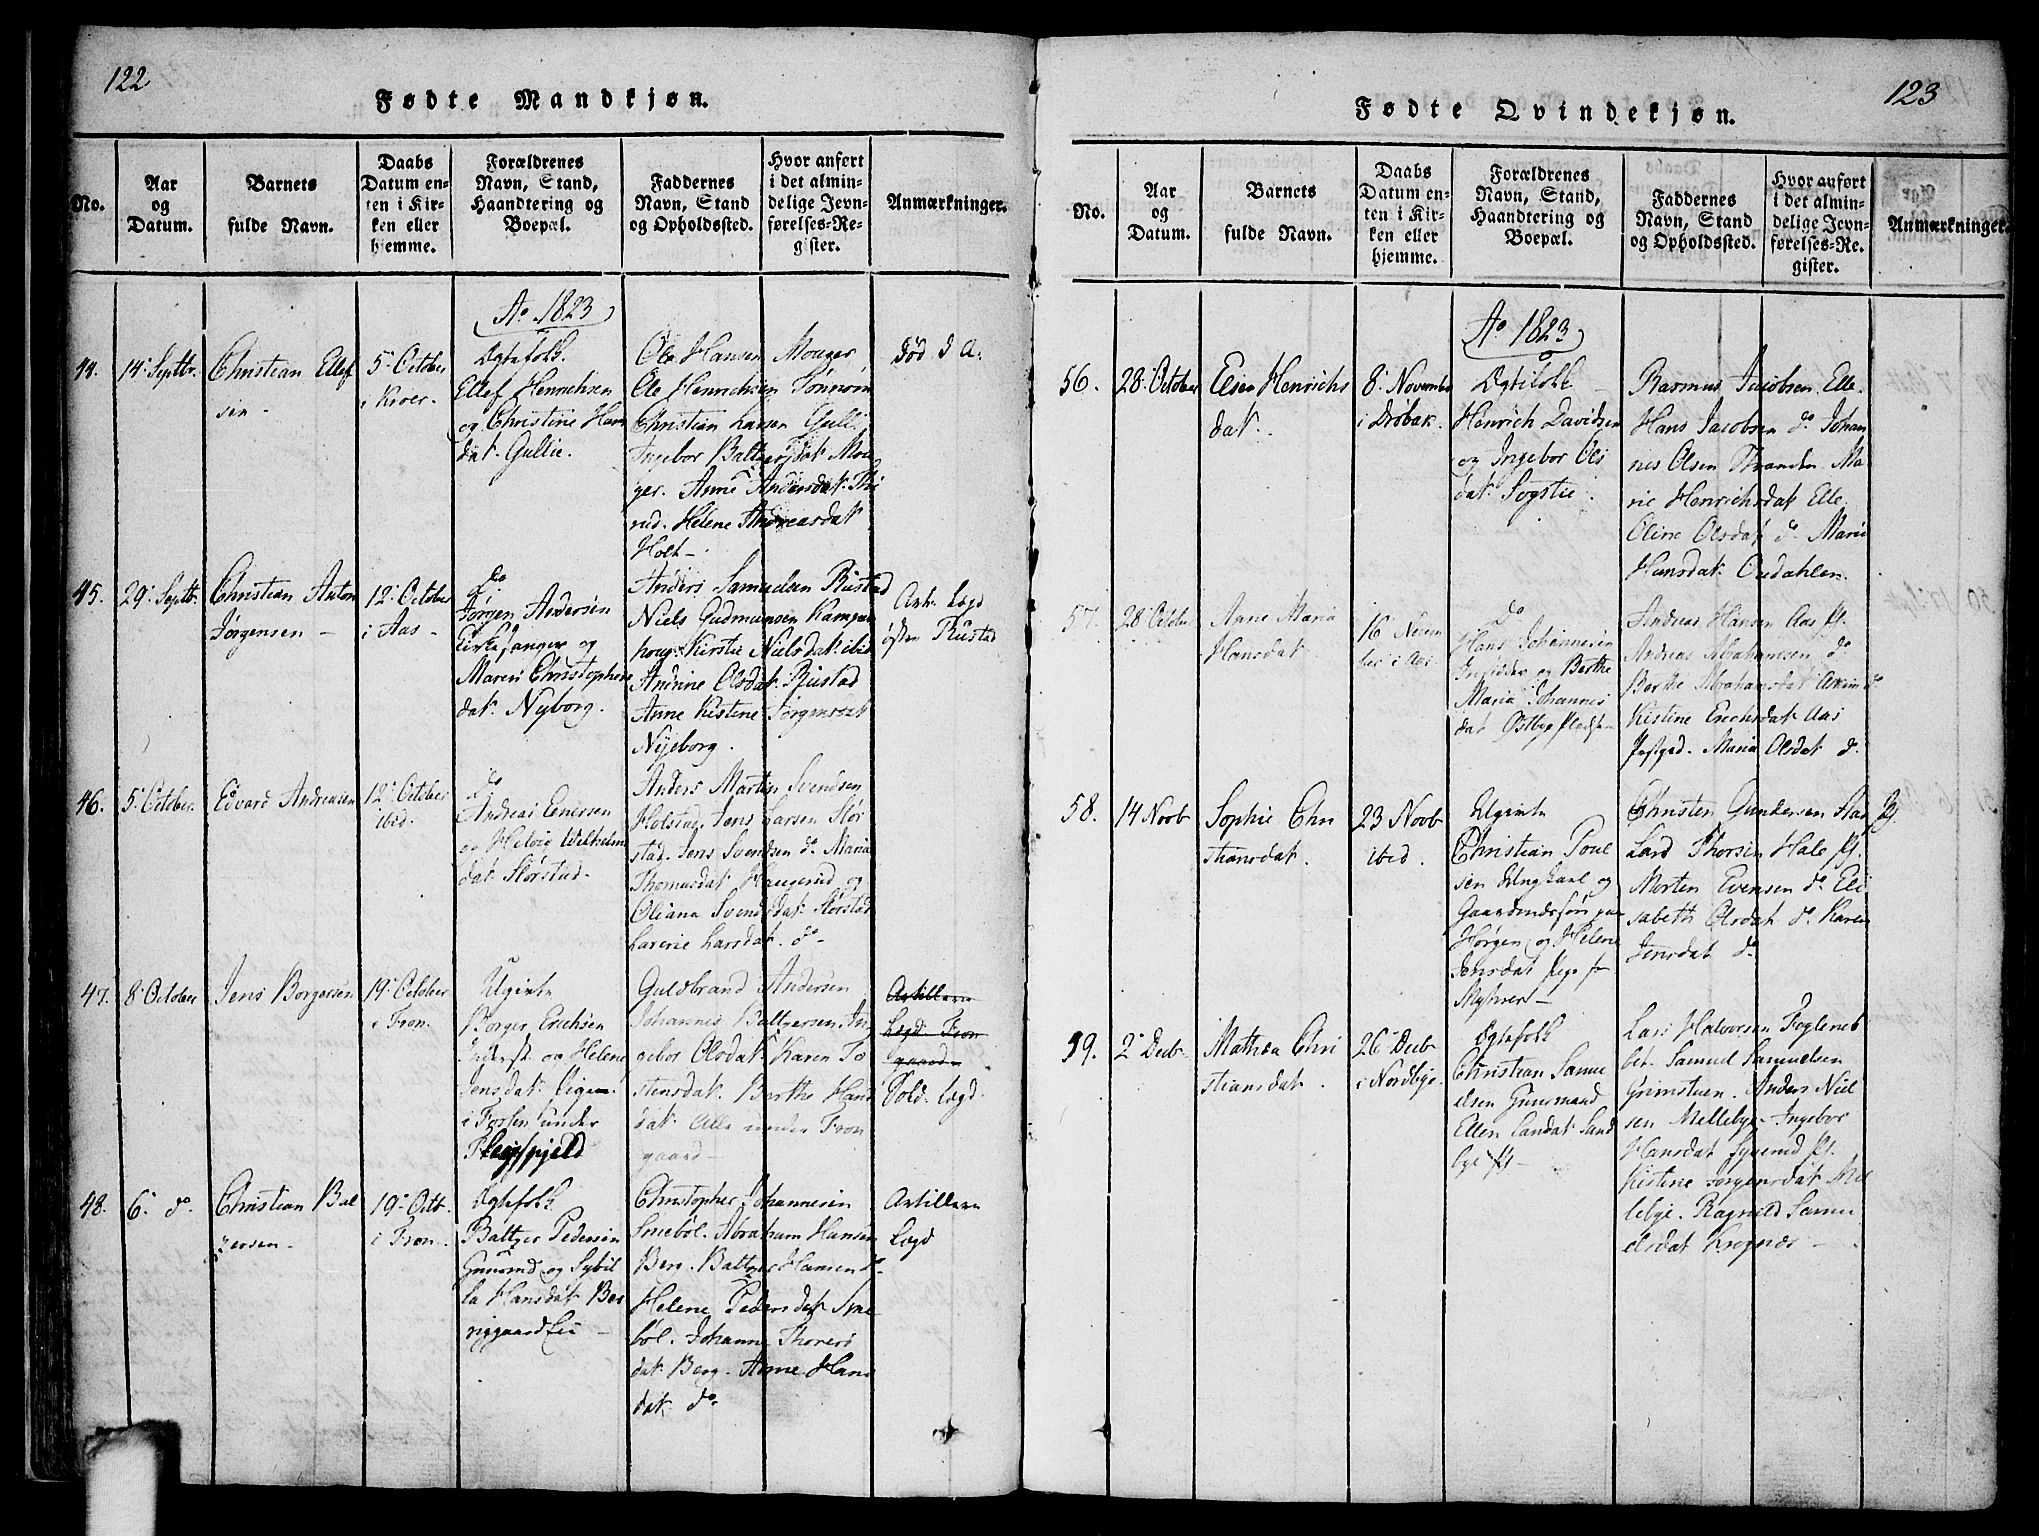 122
Fødte Mandkjøn.
No.
Aar
og
Datum.
Barnets
fulde Navn.
Daabs
Datum en-
ten i Kir-
ken eller
hjemme.
Forældrenes
Navn, Stand,
Haandtering og
Boepæl.
Faddernes
Navn, Stand
og Opholdssted.
Hvor anført
i det almin-
delige Jevn-
førelses-Re-
gister.
Anmærkninger.
Ao 1823
44.
14. Septbr.
Christian Ellef
sen
5. October
i Kroer
Ægtefolk
Ellef Henrichsen
og Christine Han
dat. Gullie.
Ole Hansen Mouger
Ole Henrichsen
Christian Larsen Gulli
Ingebor Baltzersdat. Mou
ger. Anne Andersdat.
rud. Helene Andreasdat
Holt
død d A.
45.
29. Septbr.
Christian Anton
Jørgensen
12. October
i Aas
do
Jørgen Andersen
Kirkesanger og
Maren Christophers
dat. Nyborg.
Anders Samuelsen Rustad
Niels Gudmunsen Kampen
houg. Kirstie Nielsdat. ibid
Andrine Olsdat. Rustad
Anne Kistine Jørgensdat
Nyeborg.
Art. Lægd
Rustad
46.
5. October.
Edvard Andreasen
12. October
ibid.
do
Andreas Enersen
og Helvig Wilhelm
dat. Størstad
Anders Martin Svendsen
Holstad. Jens Larsen Stør
stad. Jens Svendsen do Maria
Thomasdat Haugerud og
Oliana Svendsdat. Størstad
Larsdat. do
47.
8. October
Jens Borgersen
19. October
i Fron.
Ugivte
Borger Erichsen
Inderst. og Helene
Jensdat. Pigen
i Fossen under
Guldbrand Andersen
Johannes Baltzersen. In
gebor Olsdat. Karen To
stensdat. Berthe Hans
dat. Alle under Fron
gaard
Artilleri
Lægd Fron
gaard
Sold. Lægd.
48.
6. do
Christian Bal
zersen
19. Octb.
i Fron.
Ægtefolk
Baltzer Pedersen
og Sybil
la Hansdat Ber
Christopher Johannesen
Smebøl. Abraham Hansen
Berg. Baltzer Hansen do
Helene Pedersdat Sme
bøl. Johanne Thores
dat. Berg. Anne Hans
dat. do
Artilleri
Lægd
123
Fødte Qvindekjøn.
No.
Aar
og
Datum.
Barnets
fulde Navn.
Daabs
Datum en-
ten i Kir-
ken eller
hjemme.
Forældrenes
Navn, Stand,
Haandtering og
Boepæl.
Faddernes
Navn, Stand
og Opholdssted.
Hvor anført
i det almin-
delige Jevn-
førelses-Re-
gister.
Anmærkninger.
Ao 1823
56.
28. October
Elen Henrichs
dat.
8. November
i Drøbak.
Ægtefolk
Henrich Davidsen
og Ingebor Ols
dat. Sogstie.
Rasmus Jacobsen Elle
Hans Jacobsen do Johan
nes Olsen Ma
rie Henrichsdat Elle.
Oline Olsdat do Marie
Hansdat. Oudahlen.
57.
28 October
Anne Maria
Hansdat
16 Novem
ber i Aas
do
Hans Johannesen
og Berthe
Maria Johannes
dat Østbye Pladsen
Andreas Hansen Aas Pl.
Andreas Abrahamsen do
Berthe Abrahamsdat do
Kistine Erichsdat Aas
Præstgrd. Maria Olsdat do
58.
14 Novb
Sophie Chri
stiansdat.
23 Novb
ibid.
Ugivte
Christian Poul
sen Ungkarl og
Gaardmandssøn paa
Horgen og Helene
Jensdat Pige fra
Myhrer
Christen Gundersen Aas Pl.
Lars Thorsen Hale Pl.
Morten Evensen do Eli
sabeth Olsdat do Karen
Jensdat do
59.
2. Decb
Mathea Chri
stiansdat.
26 Decb
i Nordbye.
Ægtefolk
Christian Samu
elsen Huusmand
Ellen Larsdat Sand
bye Pl
Lars Halvorsen Fogleneb
bet. Samuel Samuelsen
Grimstuen. Anders Niel
sen Mellebye. Ingebor
Hansdat Pl.
Kistine Jørgensdat Mel
lebye. Ragnild Samu
elsdat Krognæs